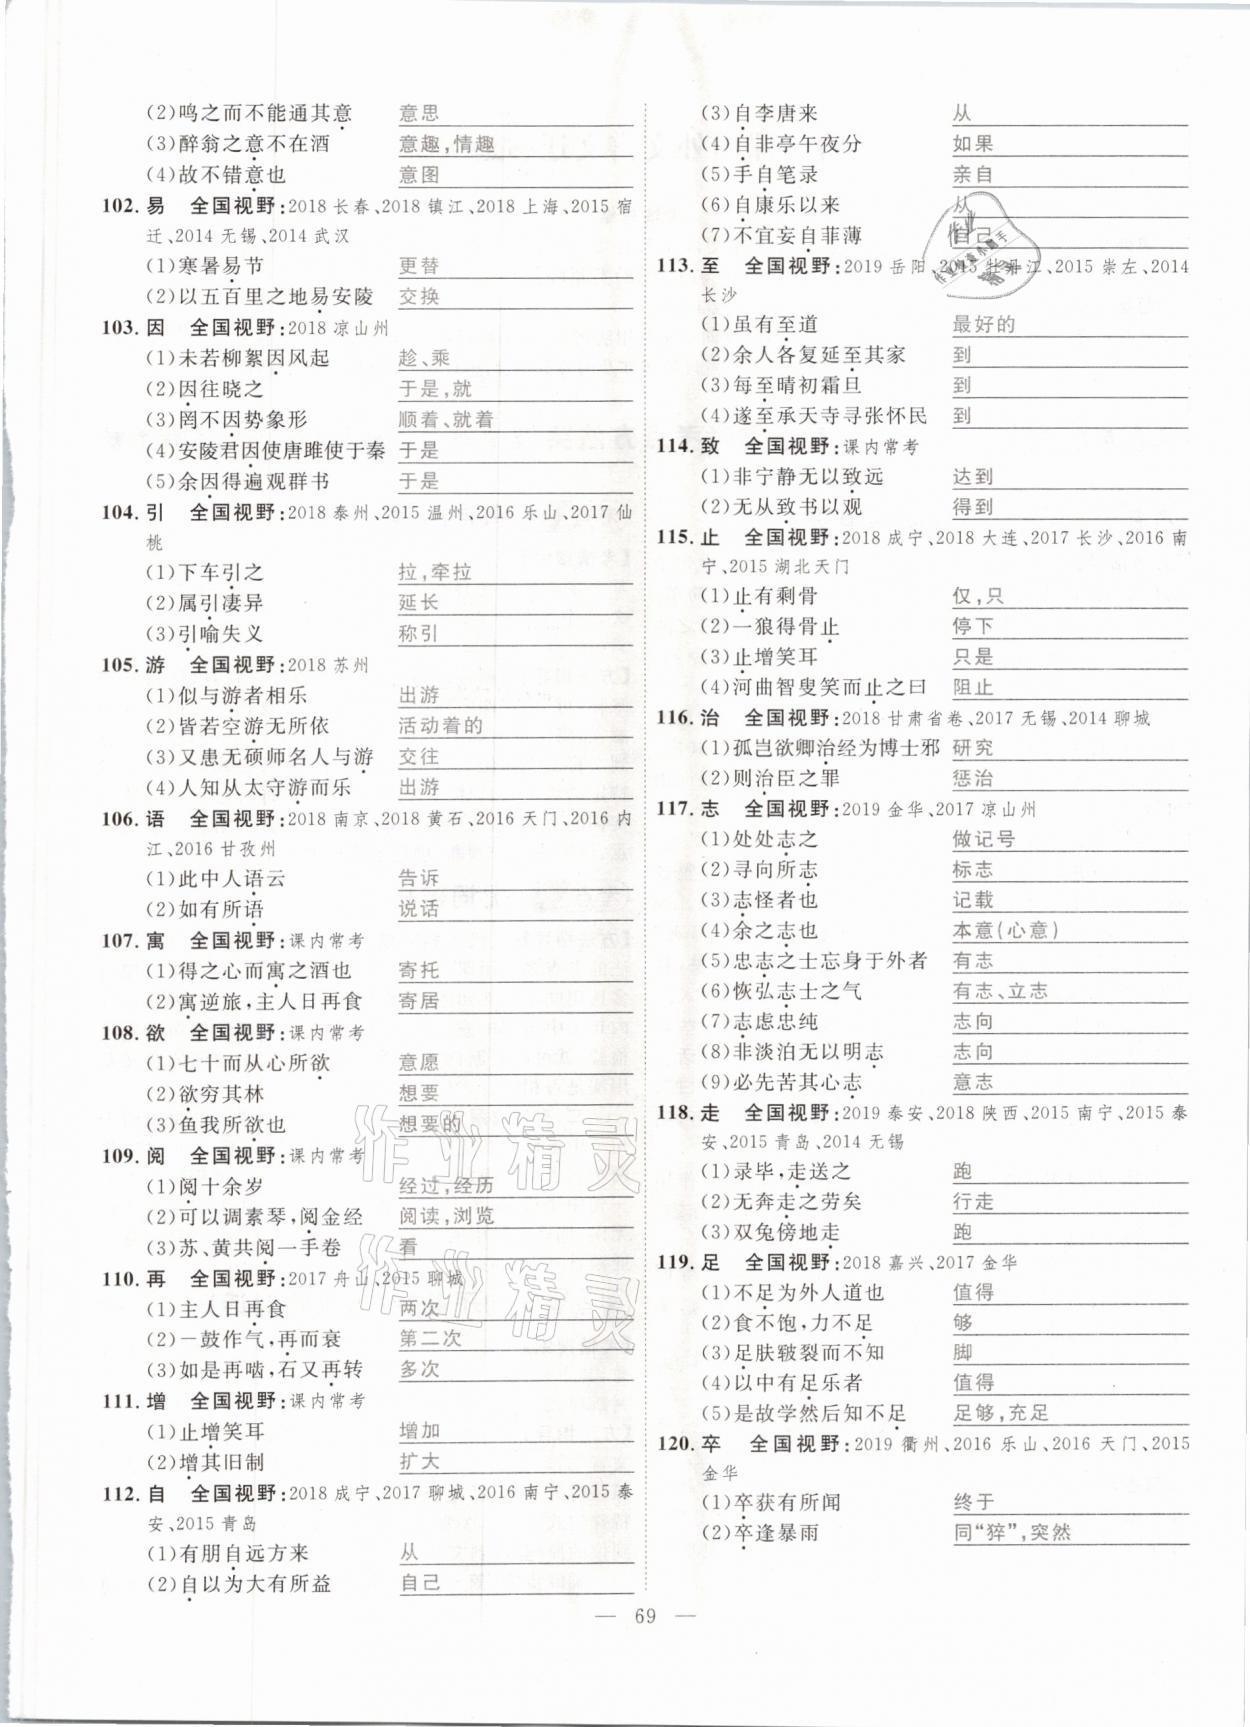 (2)鸣之而不能通其意 意思
(3)醉翁之意不在酒 意趣,情趣
(4)故不错意也 意图
102. 易 全国视野:2018 长春、2018 镇江、2018 上海、2015 宿
迁、2014 无锡、2014 武汉
(1)寒暑易节 更替
(2)以五百里之地易安陵 交换
103. 因 全国视野:2018 凉山州
(1)未若柳絮因风起 趁、乘
(2)因往晓之 于是,就
(3)罔不因势象形 顺着、就着
(4)安陵君因使唐雎使于秦 于是
(5)余因得遍观群书 于是
104. 引 全国视野:2018 泰州、2015 温州、2016 乐山、2017 仙
桃
(1)下车引之 拉,牵拉
(2)属引凄异 延长
(3)引喻失义 称引
105. 游 全国视野:2018 苏州
(1)似与游者相乐 出游
(2)皆若空游无所依 活动着的
(3)又患无硕师名人与游 交往
(4)人知从太守游而乐 出游
106. 语 全国视野:2018 南京、2018 黄石、2016 天门、2016 内
江、2016 甘孜州
(1)此中人语云 告诉
(2)如有所语 说话
107. 寓 全国视野:课内常考
(1)得之心而寓之酒也 寄托
(2)寓逆旅,主人日再食 寄居
108. 欲 全国视野:课内常考
(1)七十而从心所欲 意愿
(2)欲穷其林 想要
(3)鱼我所欲也 想要的
109. 阅 全国视野:课内常考
(1)阅十余岁 经过,经历
(2)可以调素琴,阅金经 阅读,浏览
(3)苏、黄共阅一手卷 看
110. 再 全国视野:2017 舟山、2015 聊城
(1)主人日再食 两次
(2)一鼓作气,再而衰 第二次
(3)如是再啮,石又再转 多次
111. 增 全国视野:课内常考
(1)止增笑耳 增加
(2)增其旧制 扩大
112. 自 全国视野:2018 咸宁、2017 聊城、2016 南宁、2015 泰
安、2015 青岛
(1)有朋自远方来 从
(2)自以为大有所益 自己
(3)自李唐来 从
(4)自非亭午夜分 如果
(5)手自笔录 亲自
(6)自康乐以来 从
(7)不宜妄自菲薄 自己
113. 至 全国视野:2019 岳阳、2015 牡丹江、2015 崇左、2014
长沙
(1)虽有至道 最好的
(2)余人各复延至其家 到
(3)每至晴初霜旦 到
(4)遂至承天寺寻张怀民 到
114. 致 全国视野:课内常考
(1)非宁静无以致远 达到
(2)无从致书以观 得到
115. 止 全国视野:2018 咸宁、2018 大连、2017 长沙、2016 南
宁、2015 湖北天门
(1)止有剩骨 仅,只
(2)一狼得骨止 停下
(3)止增笑耳 只是
(4)河曲智叟笑而止之曰 阻止
116. 治 全国视野:2018 甘肃省卷、2017 无锡、2014 聊城
(1)孤岂欲卿治经为博士邪 研究
(2)则治臣之罪 惩治
117. 志 全国视野:2019 金华、2017 凉山州
(1)处处志之 做记号
(2)寻向所志 标志
(3)志怪者也 记载
(4)余之志也 本意(心意)
(5)忠志之士忘身于外者 有志
(6)恢弘志士之气 有志、立志
(7)志虑忠纯 志向
(8)非淡泊无以明志 志向
(9)必先苦其心志 意志
118. 走 全国视野:2019 泰安、2018 陕西、2015 南宁、2015 泰
安、2015 青岛、2014 无锡
(1)录毕,走送之 跑
(2)无奔走之劳矣 行走
(3)双兔傍地走 跑
119. 足 全国视野:2018 嘉兴、2017 金华
(1)不足为外人道也 值得
(2)食不饱,力不足 够
(3)足肤皲裂而不知 脚
(4)以中有足乐者 值得
(5)是故学然后知不足 足够,充足
120. 卒 全国视野:2019 衢州、2016 乐山、2016 天门、2015
金华
(1)卒获有所闻 终于
(2)卒逢暴雨 同“猝”,突然
— 69 —
作业精灵
作业精灵